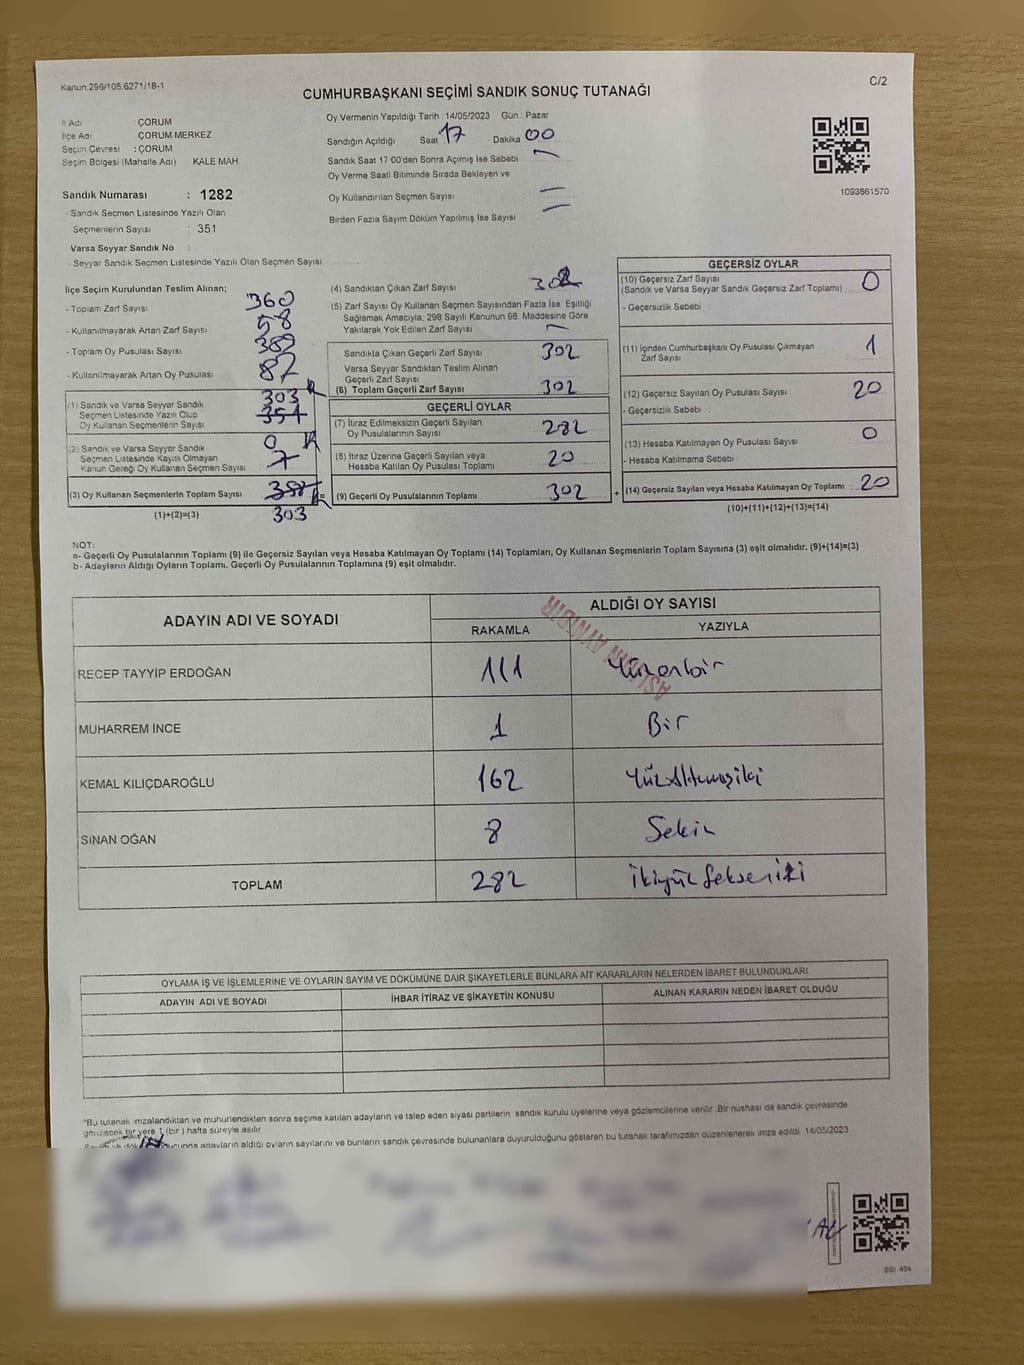 Kanun:296/105:6271/18-1
C/2
CUMHURBAŞKANI SEÇİMİ SANDIK SONUÇ TUTANAĞI
İl Adı : ÇORUM
İlçe Adı : ÇORUM MERKEZ
Seçim Çevresi : ÇORUM
Seçim Bölgesi (Mahalle Adı) KALE MAH
Sandık Numarası : 1282
- Sandık Seçmen Listesinde Yazılı Olan
Seçmenlerin Sayısı : 351
Varsa Seyyar Sandık No :
- Seyyar Sandık Seçmen Listesinde Yazılı Olan Seçmen Sayısı
Oy Vermenin Yapıldığı Tarih : 14/05/2023 Gün : Pazar
Sandığın Açıldığı Saat 17 Dakika 00
Sandık Saat 17 00'den Sonra Açımış İse Sebebi
Oy Verme Saati Bitiminde Sırada Bekleyen ve
Oy Kullandırılan Seçmen Sayısı
Birden Fazla Sayım Döküm Yapılmış İse Sayısı
1093861570
İlçe Seçim Kurulundan Teslim Alınan;
- Toplam Zarf Sayısı 360
- Kullanılmayarak Artan Zarf Sayısı 58
- Toplam Oy Pusulası Sayısı 389
- Kullanılmayarak Artan Oy Pusulası 87
(1) Sandık ve Varsa Seyyar Sandık 303
Seçmen Listesinde Yazılı Olup 351
Oy Kullanan Seçmenlerin Sayısı
(2) Sandık ve Varsa Seyyar Sandık 0
Seçmen Listesinde Kayıtlı Olmayan 7
Kanun Gereği Oy Kullanan Seçmen Sayısı
(3) Oy Kullanan Seçmenlerin Toplam Sayısı
(1)+(2)=(3) 303
(4) Sandıktan Çıkan Zarf Sayısı 302
(5) Zarf Sayısı Oy Kullanan Seçmen Sayısından Fazla İse, Eşitliği
Sağlamak Amacıyla, 298 Sayılı Kanunun 98. Maddesine Göre
Yakılarak Yok Edilen Zarf Sayısı
Sandıkta Çıkan Geçerli Zarf Sayısı 302
Varsa Seyyar Sandıktan Teslim Alınan
Geçerli Zarf Sayısı
(6) Toplam Geçerli Zarf Sayısı 302
GEÇERLİ OYLAR
(7) İtiraz Edilmeksizin Geçerli Sayılan
Oy Pusulalarının Sayısı 282
(8) İtiraz Üzerine Geçerli Sayılan veya
Hesaba Katılan Oy Pusulası Toplamı 20
= (9) Geçerli Oy Pusulalarının Toplamı 302
GEÇERSİZ OYLAR
(10) Geçersiz Zarf Sayısı
(Sandık ve Varsa Seyyar Sandık Geçersiz Zarf Toplamı) : 0
- Geçersizlik Sebebi :
(11) İçinden Cumhurbaşkanı Oy Pusulası Çıkmayan
Zarf Sayısı 1
(12) Geçersiz Sayılan Oy Pusulası Sayısı 20
- Geçersizlik Sebebi :
(13) Hesaba Katılmayan Oy Pusulası Sayısı 0
- Hesaba Katılmama Sebebi :
+ (14) Geçersiz Sayılan veya Hesaba Katılmayan Oy Toplamı : 20
(10)+(11)+(12)+(13)=(14)
NOT:
a- Geçerli Oy Pusulalarının Toplamı (9) ile Geçersiz Sayılan veya Hesaba Katılmayan Oy Toplamı (14) Toplamları, Oy Kullanan Seçmenlerin Toplam Sayısına (3) eşit olmalıdır. (9)+(14)=(3)
b- Adayların Aldığı Oyların Toplamı, Geçerli Oy Pusulalarının Toplamına (9) eşit olmalıdır.
ADAYIN ADI VE SOYADI ALDIĞI OY SAYISI
RAKAMLA YAZIYLA
ASLININ AYNIDIR
RECEP TAYYİP ERDOĞAN 111 Yüzonbir
MUHARREM İNCE 1 Bir
KEMAL KILIÇDAROĞLU 162 Yüzaltmışiki
SİNAN OĞAN 8 Sekiz
TOPLAM 282 ikiyüz Sekseniki
OYLAMA İŞ VE İŞLEMLERİNE VE OYLARIN SAYIM VE DÖKÜMÜNE DAİR ŞİKAYETLERLE BUNLARA AİT KARARLARIN NELERDEN İBARET BULUNDUKLARI
ADAYIN ADI VE SOYADI İHBAR İTİRAZ VE ŞİKAYETİN KONUSU ALINAN KARARIN NEDEN İBARET OLDUĞU
*Bu tutanak imzalandıktan ve mühürlendikten sonra seçime katılan adayların ve talep eden siyasi partilerin sandık kurulu üyelerine veya gözlemcilerine verilir. Bir nüshası da sandık çevresinde
görülecek bir yere 1 (bir) hafta süreyle asılır.
adayların aldığı oyların sayılarını ve bunların sandık çevresinde bulunanlara duyurulduğunu gösteren bu tutanak tarafımızdan düzenlenerek imza edildi. 14/05/2023